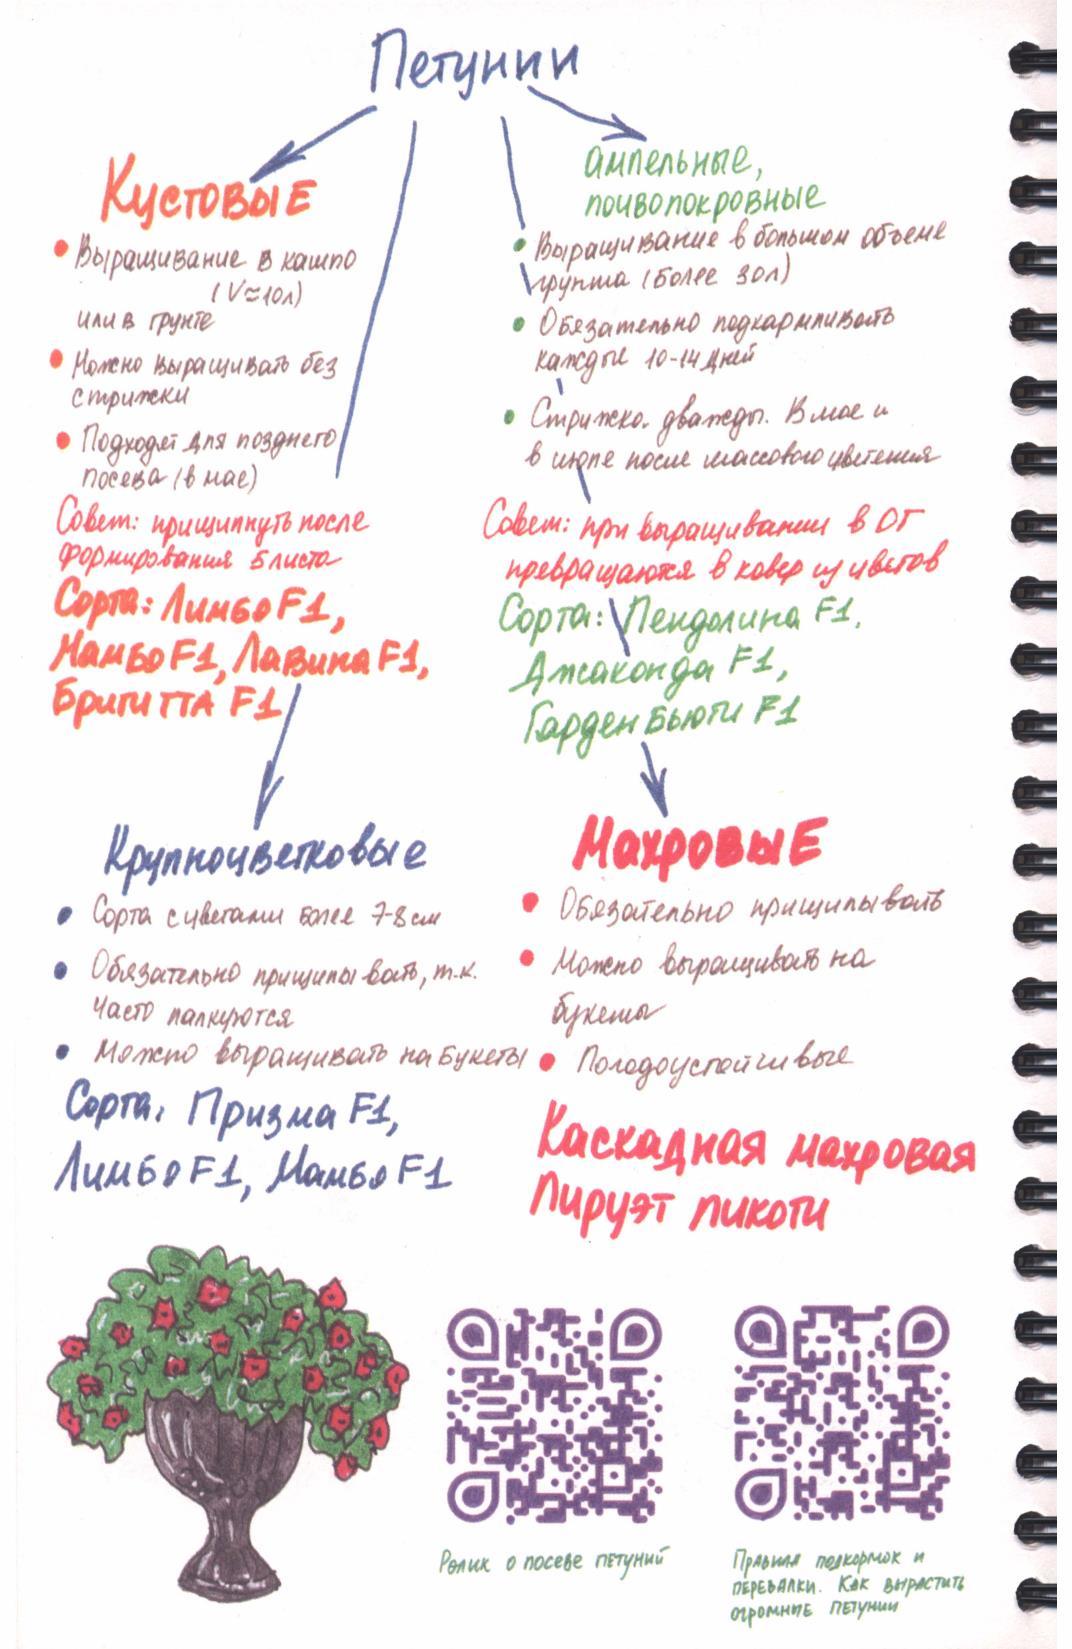 Петунии
Кустовые
Выращивание в кашпо
(V≈10л)
или в грунте
Можно выращивать без
стрижки
Подходят для позднего
посева (в мае)
Совет: прищипнуть после
формирования 5 листа
Сорта: Лимбо F1,
Мамбо F1, Лавина F1,
Бригитта F1
ампельные,
почвопокровные
Выращивание в большом объеме
грунта (более 30л)
Обязательно подкармливать
каждые 10-14 дней
Стрижка дважды. В мае и
в июле после массового цветения
Совет: при выращивании в ОГ
превращаются в ковер из цветов
Сорта: Пендолина F1,
Джаконда F1,
Гарден Бьюти F1
Крупноцветковые
Сорта с цветами более 7-8 см
Обязательно прищипывать, т.к.
часто палкуются
Можно выращивать на букеты
Сорта: Призма F1,
Лимбо F1, Мамбо F1
Махровые
Обязательно прищипывать
Можно выращивать на
букеты
Погодоустойчивые
Каскадная махровая
Пируэт пикоти
Ролик о посеве петуний
Правила подкормок и
перевалки. Как вырастить
огромные петунии